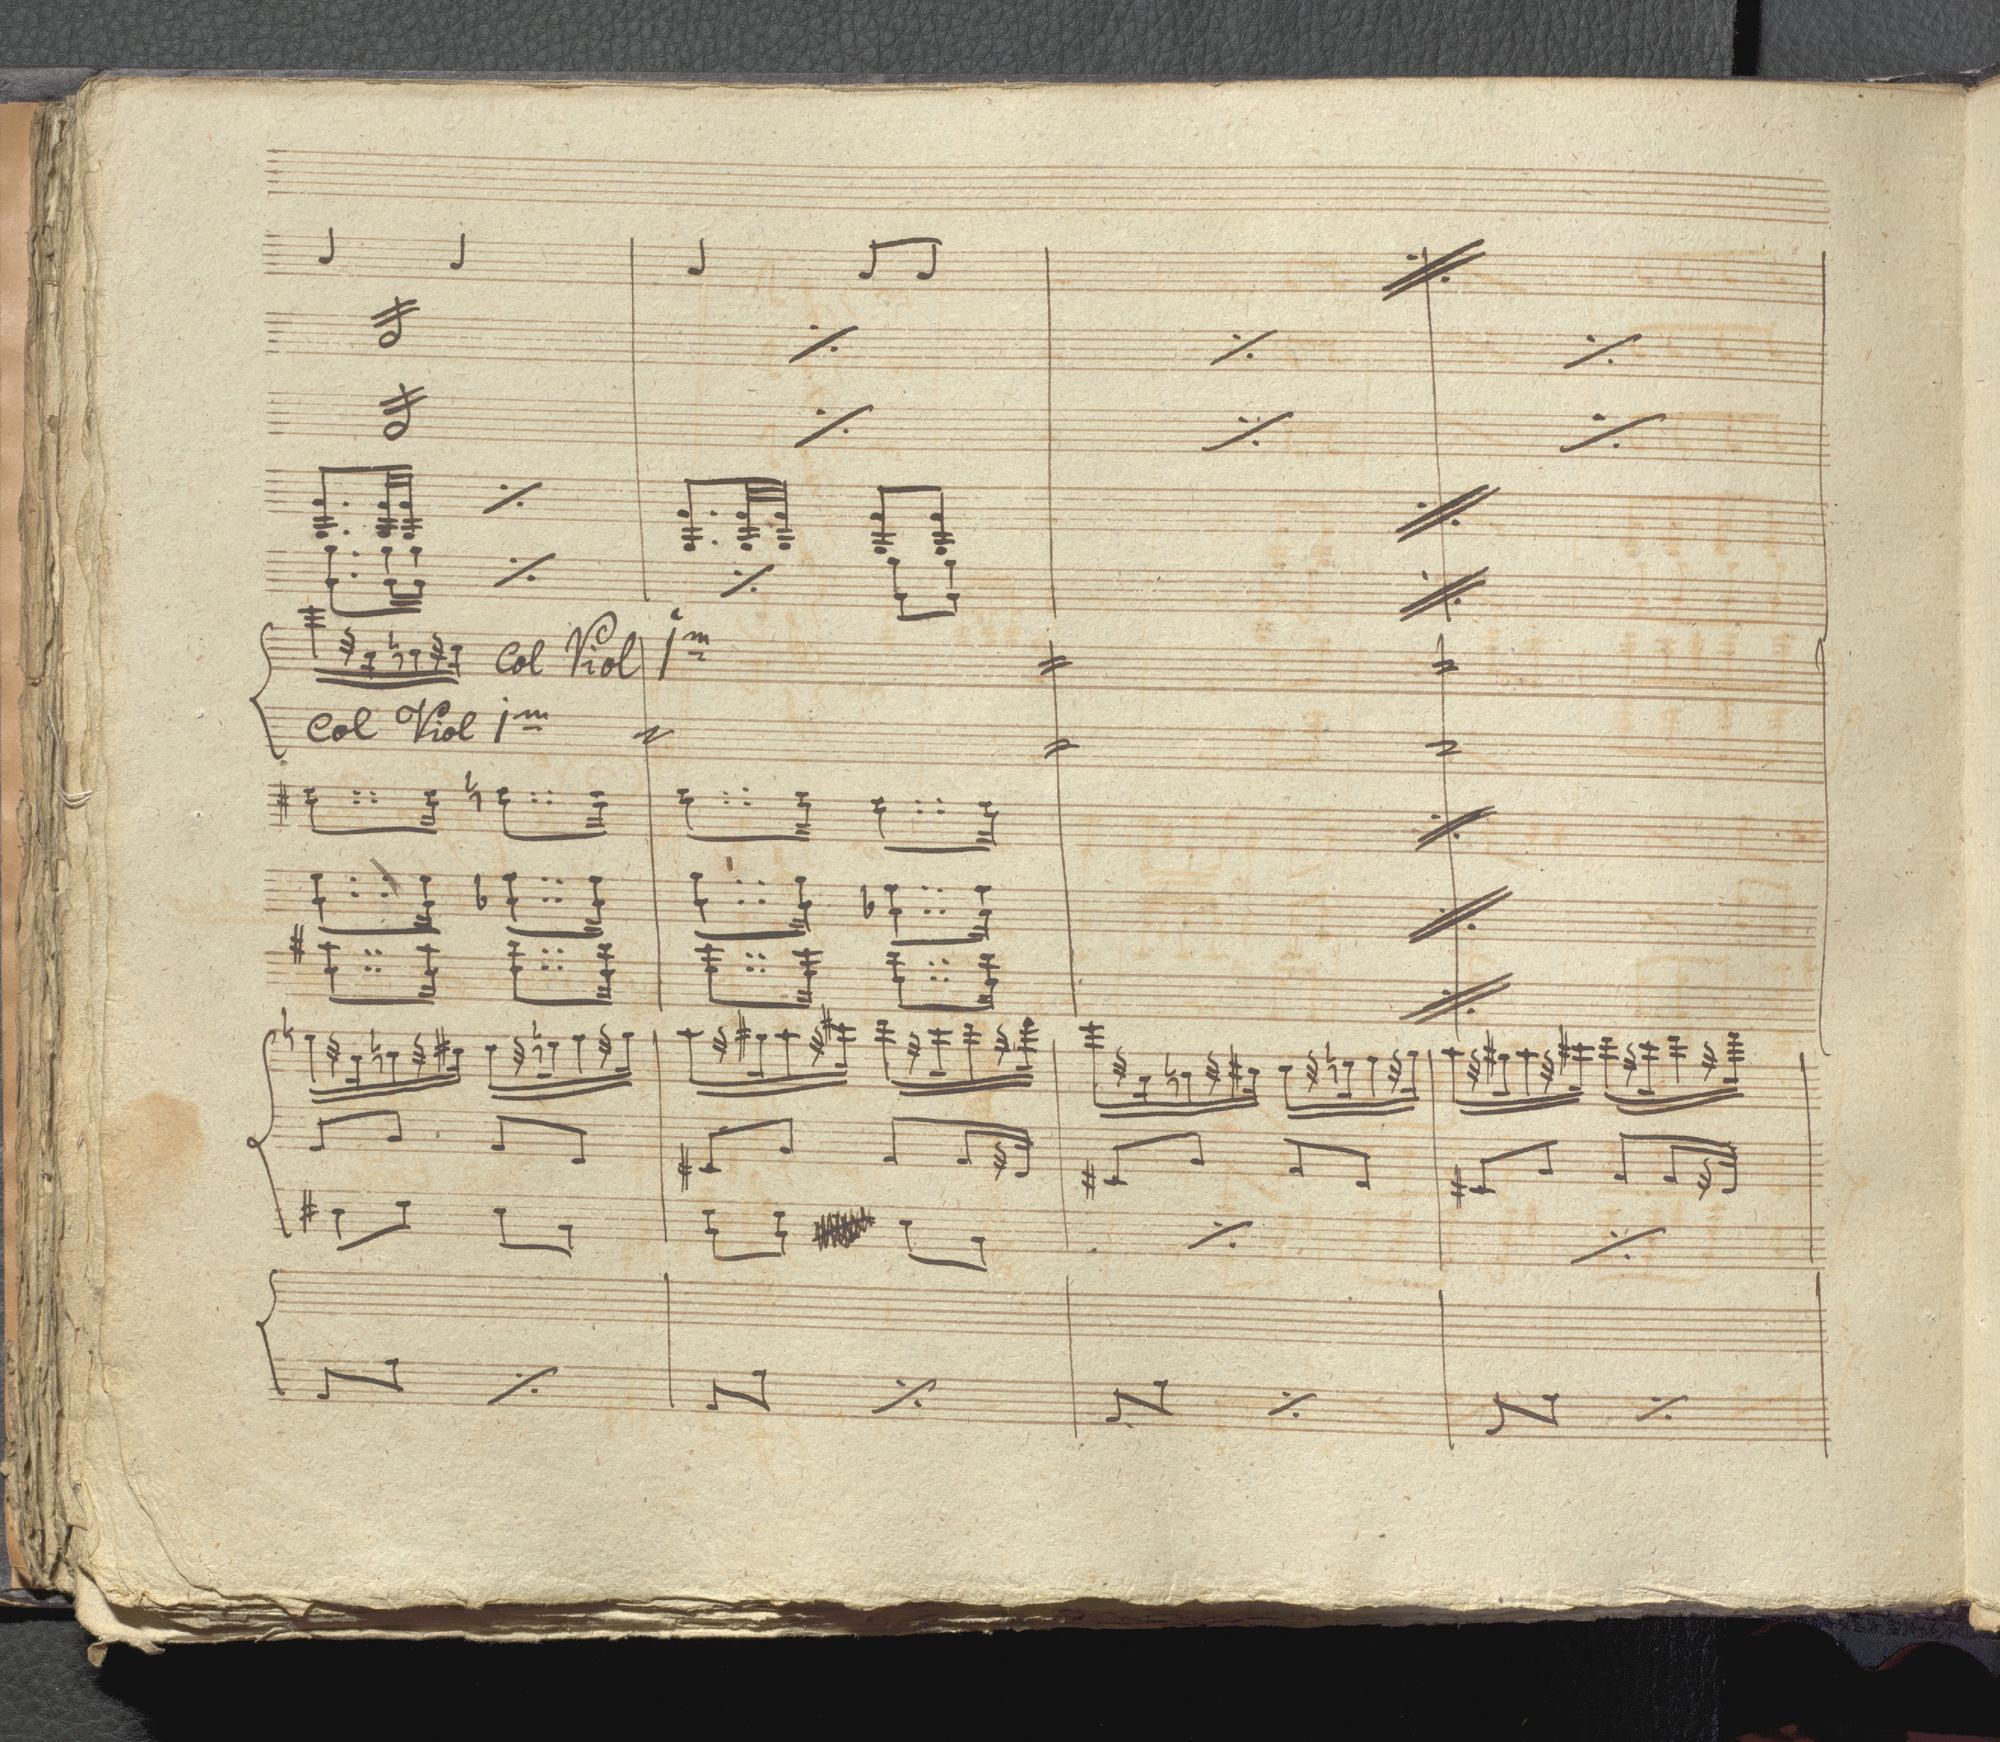 Col Viol 1m
Col Viol 1m